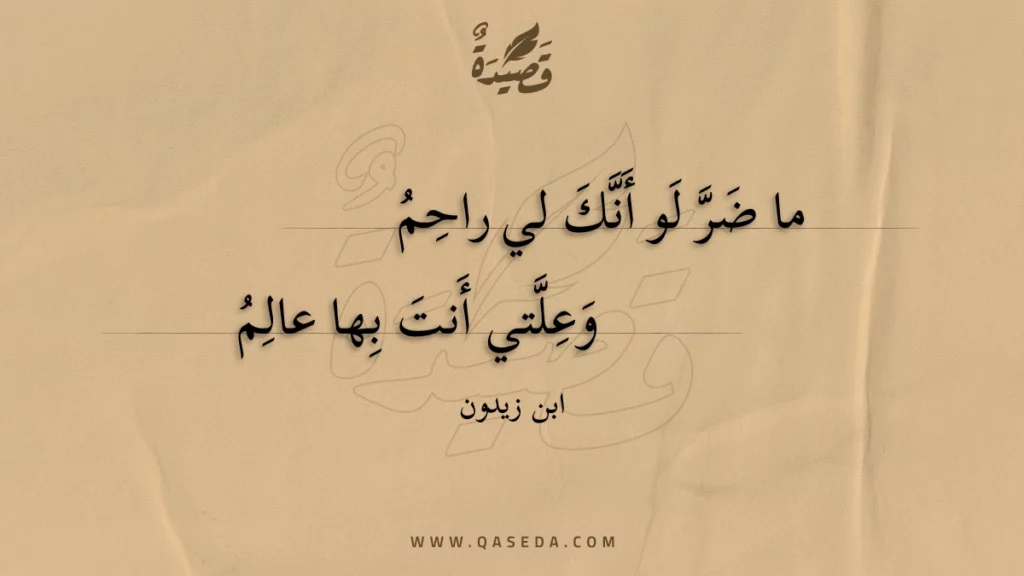 قَصِيدَةٌ
ما ضَرَّ لَو أَنَّكَ لي راحِمُ
وَعِلَّتي أَنتَ بِها عالِمُ
ابن زيدون
WWW.QASEDA.COM